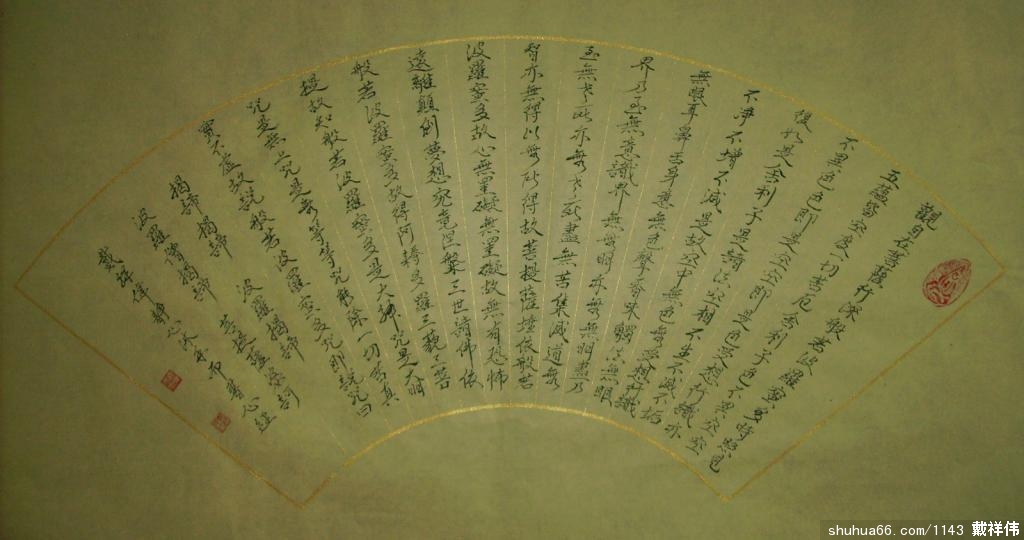 觀自在菩薩行深般若波羅蜜多時照見
五蘊皆空度一切苦厄舍利子色不異空空
不異色色即是空空即是色受想行識亦
復如是舍利子是諸法空相不生不滅不垢
不淨不增不減是故空中無色無受想行識
無眼耳鼻舌耳意無色聲香味觸法無眼
界乃至無意識界無無明亦無無明盡乃
至無老死亦無老死盡無苦集滅道無
智亦無得以無所得故菩提薩埵依般若
波羅蜜多故心無罣礙無罣礙故無有恐怖
遠離顛倒夢想究竟涅槃三世諸佛依
般若波羅蜜多故得阿耨多羅三藐三菩
提故知般若波羅蜜多是大神咒是大明
咒是無上咒是無等等咒能除一切苦真
實不虛故說般若波羅蜜多咒即說咒曰
揭諦揭諦 波羅揭諦
波羅僧揭諦 菩提薩婆訶
戴祥偉靜心沐手而書心經
shuhua66.com/1143 戴祥伟